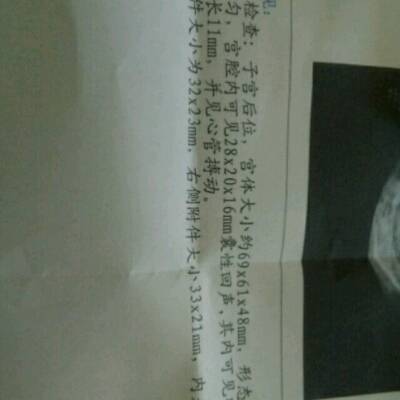 见:
检查: 子宫后位, 宫体大小约69x61x48mm, 形态
匀, 宫腔内可见28x20x16mm囊性回声, 其内可见
长11mm, 并见心管搏动。
件大小为32x23mm, 右侧附件大小33x21mm, 内